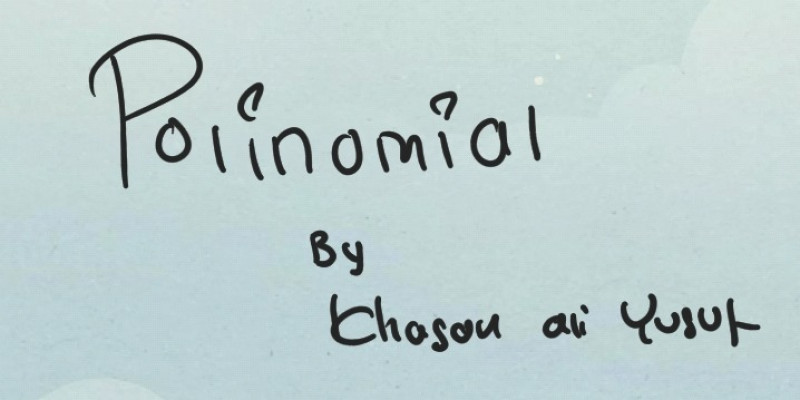 Polinomial
By
Khasan ali Yusuf